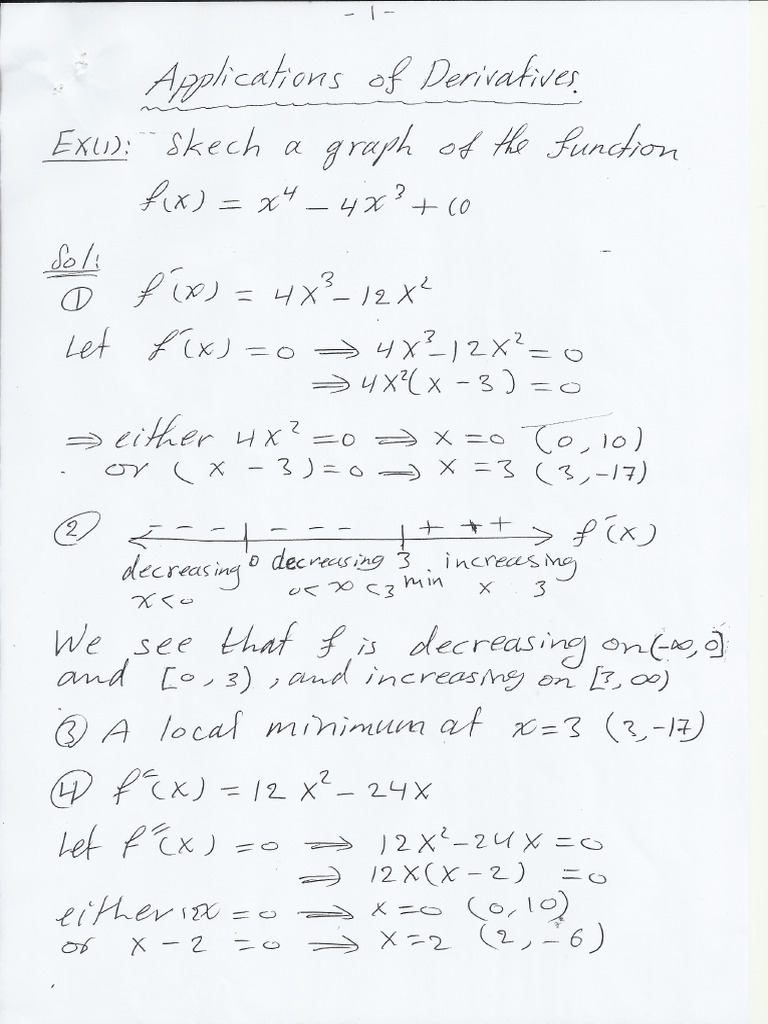 - 1 -
Applications of Derivatives.
EX(1): Skech a graph of the function
f(x) = x⁴ - 4x³ + 10
Sol:
① f′(x) = 4x³ - 12x²
Let f′(x) = 0 ⟹ 4x³ - 12x² = 0
⟹ 4x²(x - 3) = 0
⟹ either 4x² = 0 ⟹ x = 0 (0, 10)
or (x - 3) = 0 ⟹ x = 3 (3, -17)
② - - - - - - + + + f′(x)
decreasing 0 decreasing 3 increasing
x < 0 0 < x < 3 min x 3
We see that f is decreasing on (-∞, 0]
and [0, 3), and increasing on [3, ∞)
③ A local minimum at x = 3 (3, -17)
④ f″(x) = 12x² - 24x
Let f″(x) = 0 ⟹ 12x² - 24x = 0
⟹ 12x(x - 2) = 0
either 12x = 0 ⟹ x = 0 (0, 10)
or x - 2 = 0 ⟹ x = 2 (2, -6)